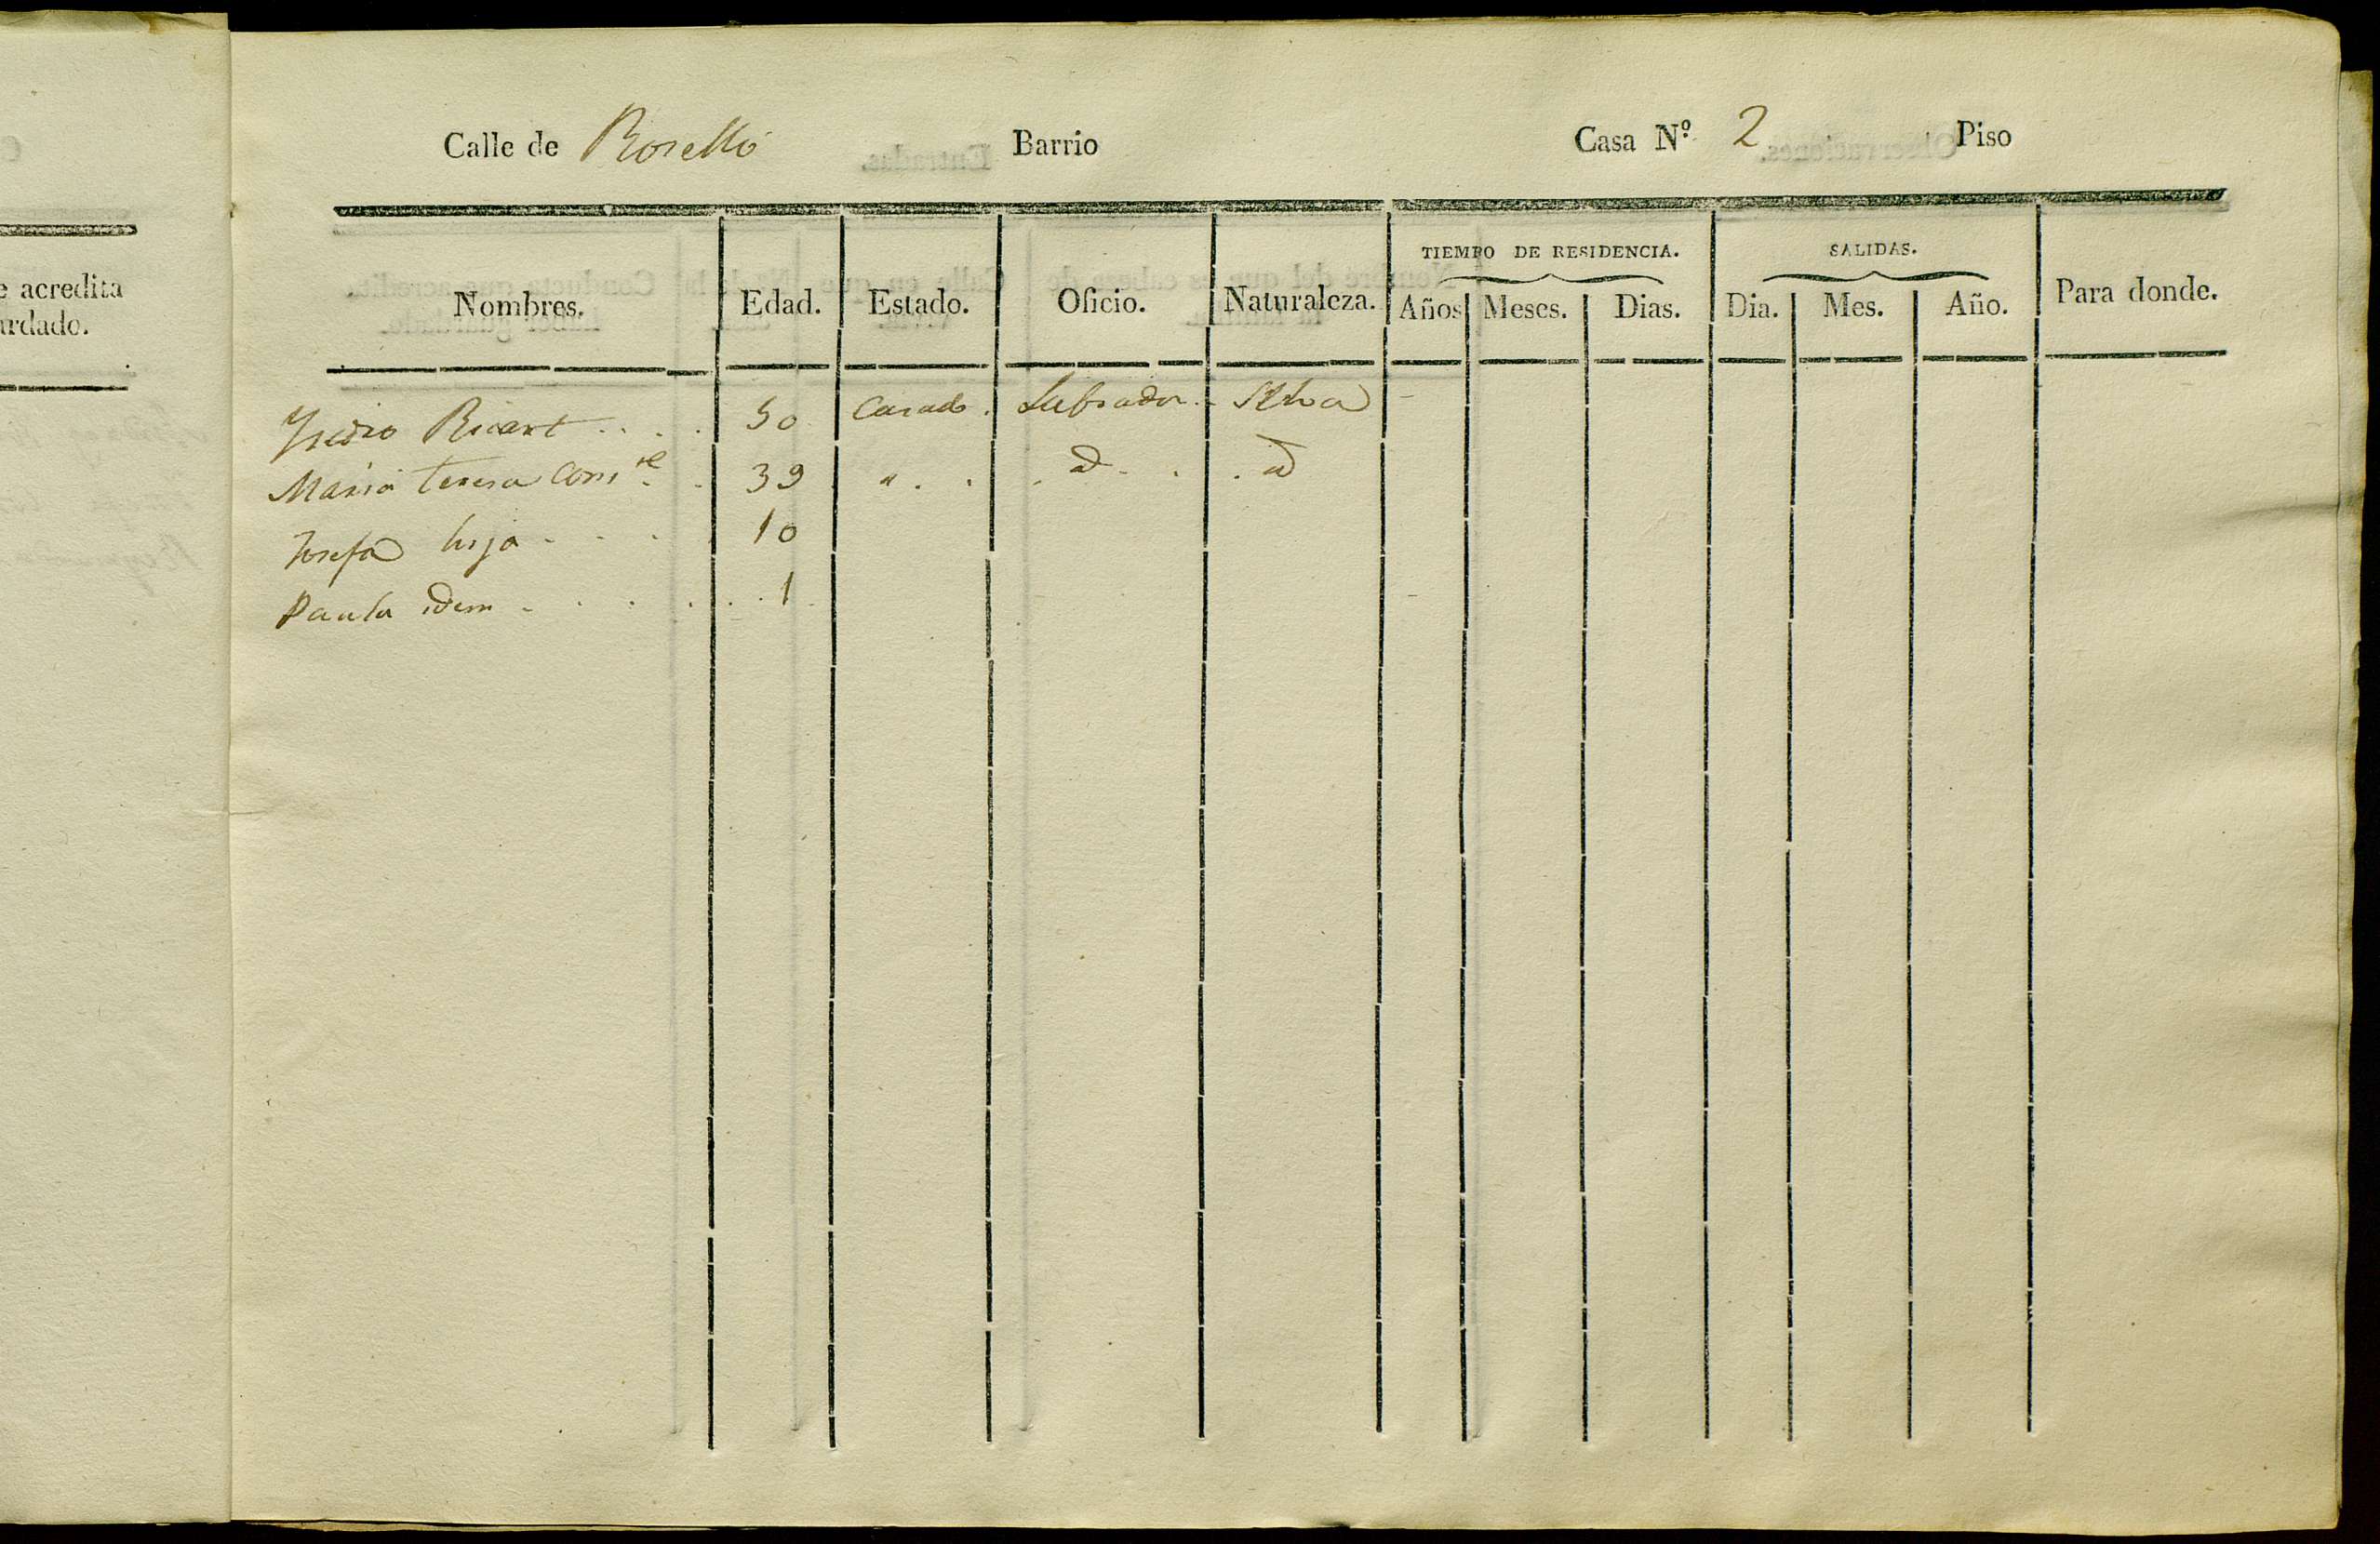 e acredita
ardado.
Calle de Roselló Barrio Casa Nº 2 Piso
TIEMPO DE RESIDENCIA. SALIDAS.
Nombres. Edad. Estado. Oficio. Naturaleza. Años Meses. Dias. Dia. Mes. Año. Para donde.
Ysidro Ricart . . . . 50 Casado . Labrador . Selva
Maria Teresa cons.te . 39 " . . . id . . . id
Josefa hija . . . 10
Paula idem . . . . . . 1